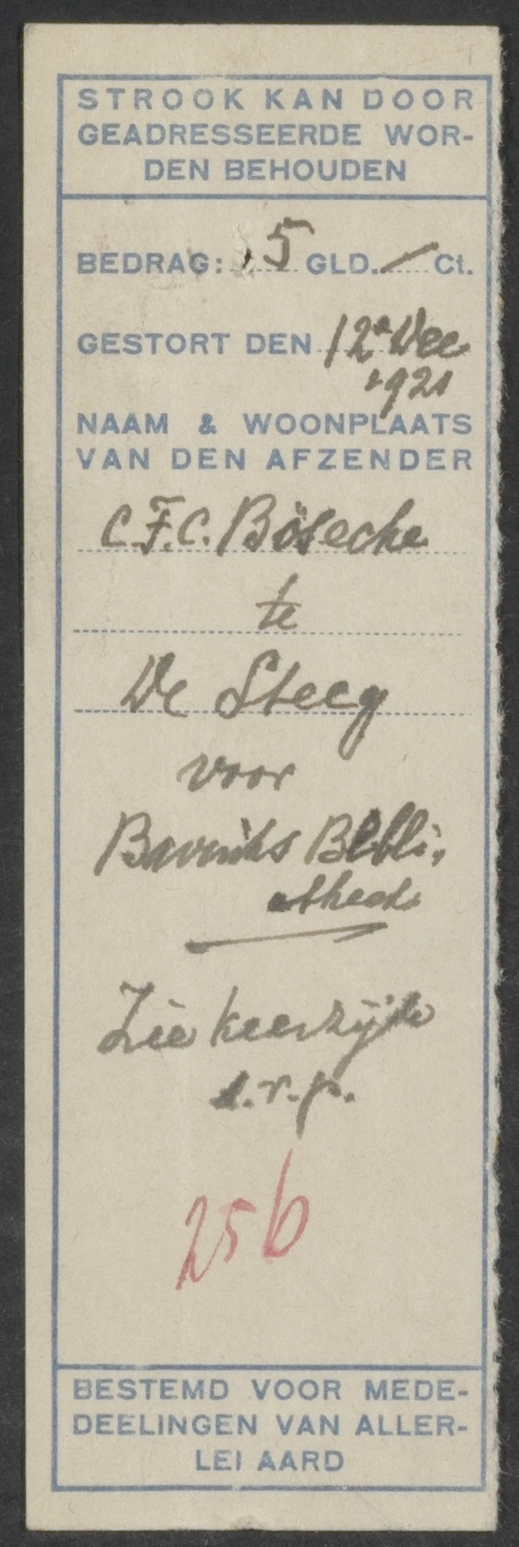 STROOK KAN DOOR
GEADRESSEERDE WOR-
DEN BEHOUDEN
BEDRAG: 5 GLD. — Ct.
GESTORT DEN 12e Dec
1921
NAAM & WOONPLAATS
VAN DEN AFZENDER
C.F.C. Böseche
te
De Steeg
voor
Bibli-
otheek
Zie keerzijde
s.v.p.
256
BESTEMD VOOR MEDE-
DEELINGEN VAN ALLER-
LEI AARD